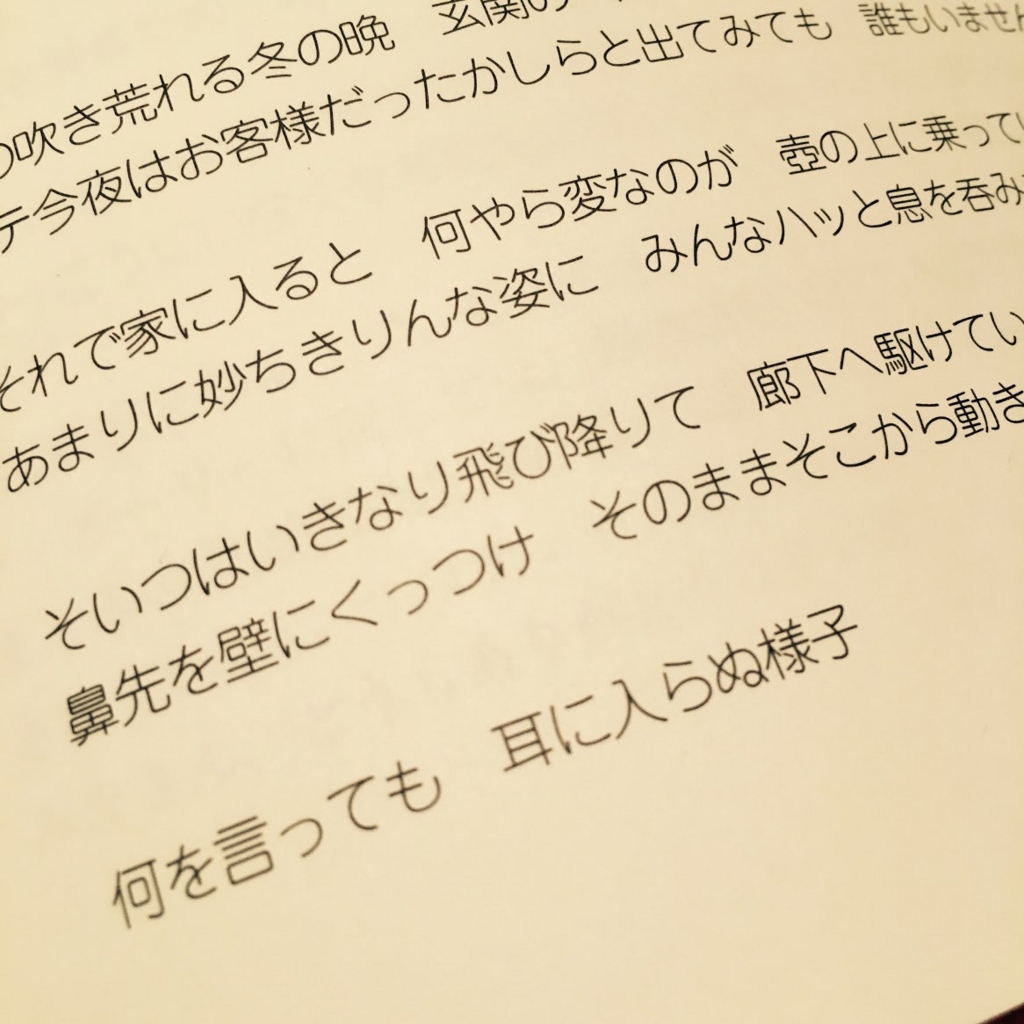 の吹き荒れる冬の晩　玄関の
テ今夜はお客様だったかしらと出てみても　誰もいません
それで家に入ると　何やら変なのが　壺の上に乗ってい
あまりに妙ちきりんな姿に　みんなハッと息を呑み
そいつはいきなり飛び降りて　廊下へ駆けてい
鼻先を壁にくっつけ　そのままそこから動き
何を言っても　耳に入らぬ様子